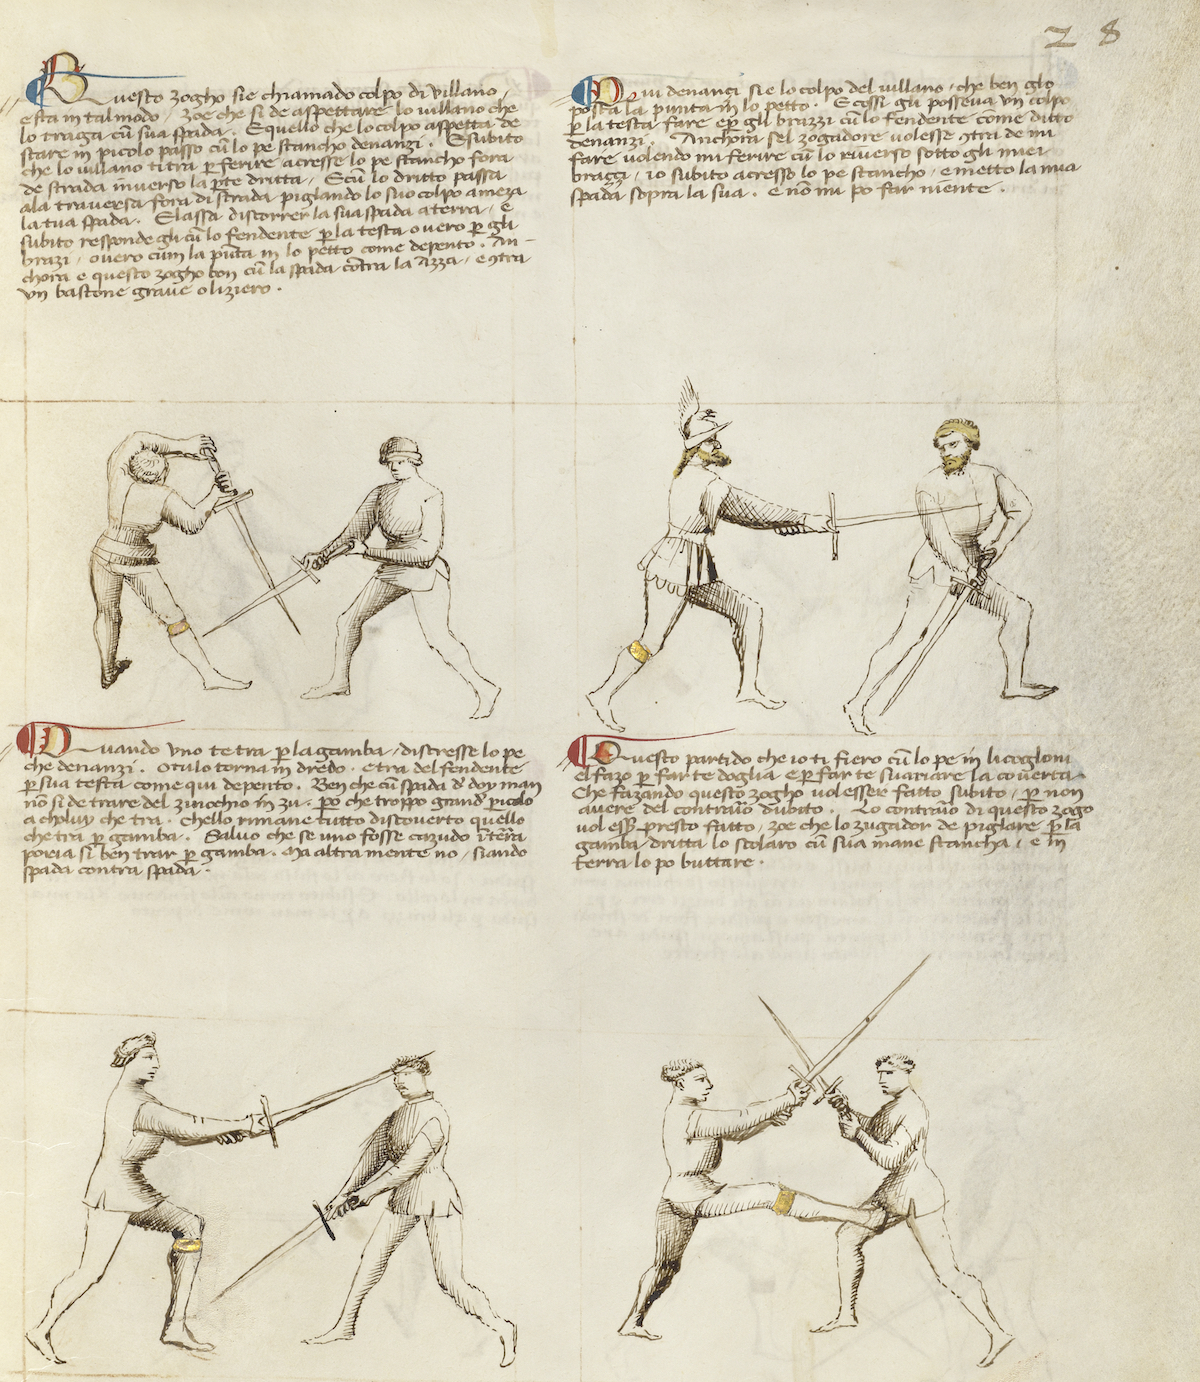 28
Questo zogho sie chiamado colpo di villano,
e sta in tal modo, zoe che si de aspettare lo villano che
lo traga cū sua spada. E quello che lo colpo aspetta de
stare in picolo passo cū lo pe stancho denanzi. E subito
che lo villano ti tra per ferire acresse lo pe stancho fora
de strada inverso la pte dritta, E cū lo dritto passa
ala traversa fora di strada piglando lo suo colpo a meza
la tua spada. E lassa discorrer la sua spada a terra, e
subito responde gli cū lo fendente per la testa overo per gli
brazi, overo cum la punta in lo petto come depento. An-
chora e questo zogho bon cū la spada contra la azza, e contra
un bastone grave o liziero.
Qui denançi si e lo colpo del villano, che ben glo
posta la punta in lo petto. E cossi gli posseva un colpo
per la testa fare e per gli brazzi cū lo fendente come ditto
denanzi. Anchora sel zogadore volesse contra de mi
fare volendo mi ferire cū lo riverso sotto gli miei
brazzi, io subito acresco lo pe stancho, e metto la mia
spada sopra la sua. E non mi po far niente.
Quando uno te tra per la gamba, discresse lo pe
che denanzi. O tu lo torna in dredo. E tra del fendente
per sua testa come qui depento. Ben che cū spada de doy man
nō si de trare del zinochio in zu. Per che troppo grande piculo
a choluy che tra. Chello rimane tutto discoverto quello
che tra per gamba. Salvo che se uno fosse cazudo in terra
poria si ben trar per gamba. Ma altra mente no, siando
spada contra spada.
Questo partido che io ti fiero cū lo pe in li cogloni
el fazo per far te doglia e per far te svariare la coverta
Che fazando questo zogho vol esser fatto subito, per non
avere del contrario dubito. Lo contrario di questo zogo
vol esser presto fatto, zoe che lo zugador de piglare per la
gamba dritta lo scolaro cū sua mane stancha, e in
terra lo po buttare.